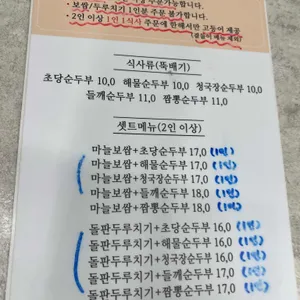 주문가능합니다.
• 보쌈/두루치기 1인분 주문 불가합니다.
• 2인 이상 1인 1식사 주문에 한해서만 고등어 제공
식사류(뚝배기)
초당순두부 10,0 해물순두부 10,0 청국장순두부 10,0
들깨순두부 11,0 짬뽕순두부 11,0
셋트메뉴(2인 이상)
마늘보쌈+초당순두부 17,0 (1인)
마늘보쌈+해물순두부 17,0 (1인)
마늘보쌈+청국장순두부 17,0 (1인)
마늘보쌈+들깨순두부 18,0 (1인)
마늘보쌈+짬뽕순두부 18,0 (1인)
돌판두루치기+초당순두부 16,0 (1인)
돌판두루치기+해물순두부 16,0 (1인)
돌판두루치기+청국장순두부 16,0 (1인)
돌판두루치기+들깨순두부 17,0 (1인)
돌판두루치기+짬뽕순두부 17,0 (1인)